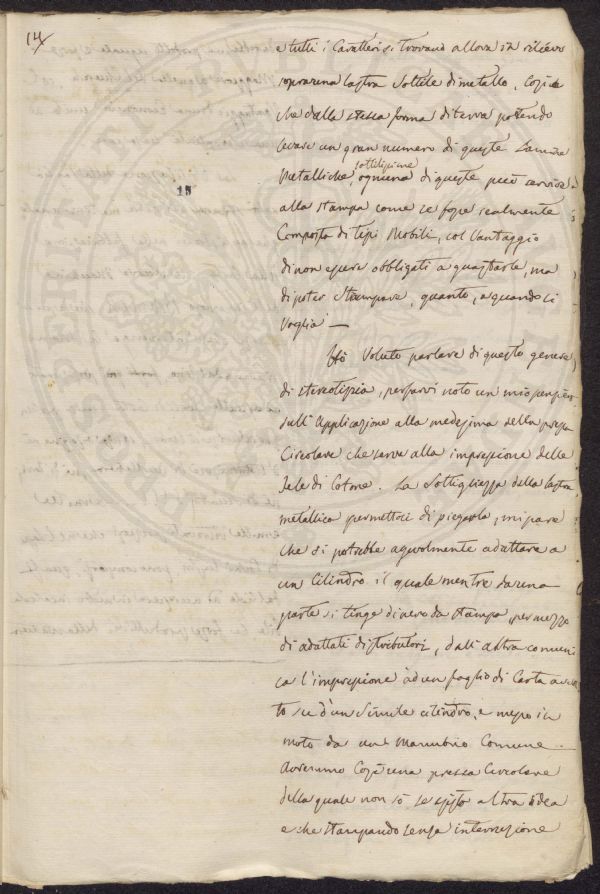 14
e tutti i Caratteri si trovano allora in rilievo
sopra una lastra sottile di metallo, Cosi che
che dalla stessa forma di terra potendo
levare un gran numero di queste Lamine
sottilissime
Metalliche, ognuna di queste può servire
alla stampa come se fosse realmente
Composta di tipi Mobili, col Vantaggio
di non essere obbligati a guastarle, ma
di poter stampare, quanto, e quando si
Voglia —
15
Hò Voluto parlare di questo genere
di stereotipia, per farvi noto un mio pensier
sull'Applicazione alla medesima della pressa
Circolare che serve alla impressione delle
Tele di Cotone. La Sottigliezza della lastra
metallica permettoci di piegarla, mi pare
che si potrebbe agevolmente adattare a
un Cilindro il quale mentre da una
parte si tinge di nero da stampa, per mezzo
di adattati distributori, dall'altra comuni
ca l'impressione ad un foglio di Carta avvol
to su d'un simile cilindro, e messo in
moto da un Manubrio Comune —
Avremmo Così una pressa Circolare
della quale non sò se esista altra idea
e che stampando senza interruzione